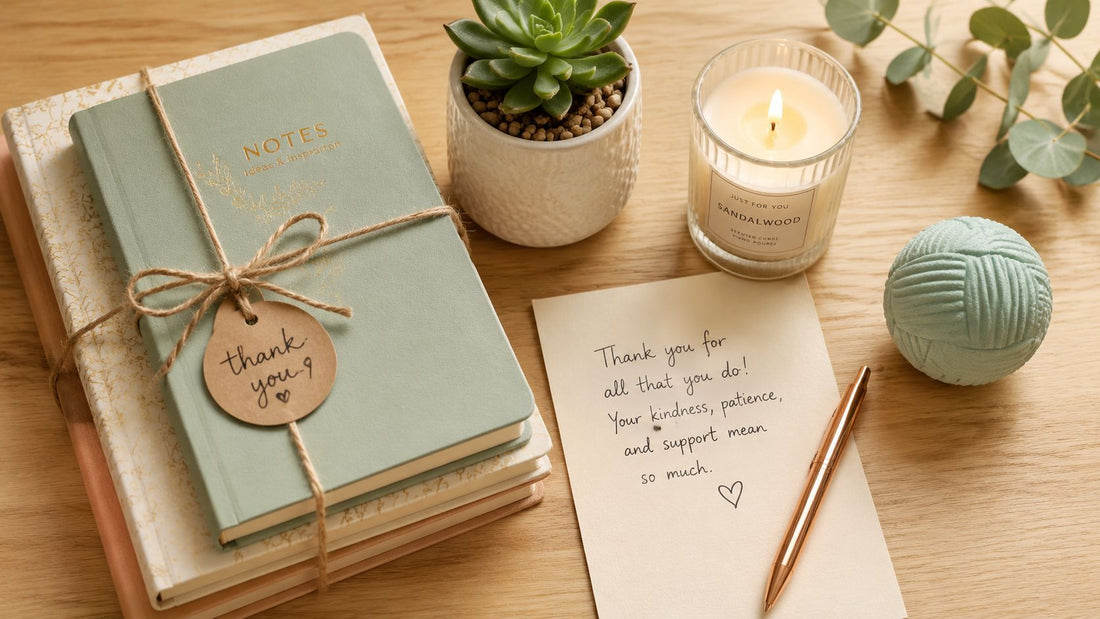 NOTES
ideas & inspiration
thank
you
JUST FOR YOU
SANDALWOOD
Thank you for
all that you do!
Your kindness, patience,
and support mean
so much.